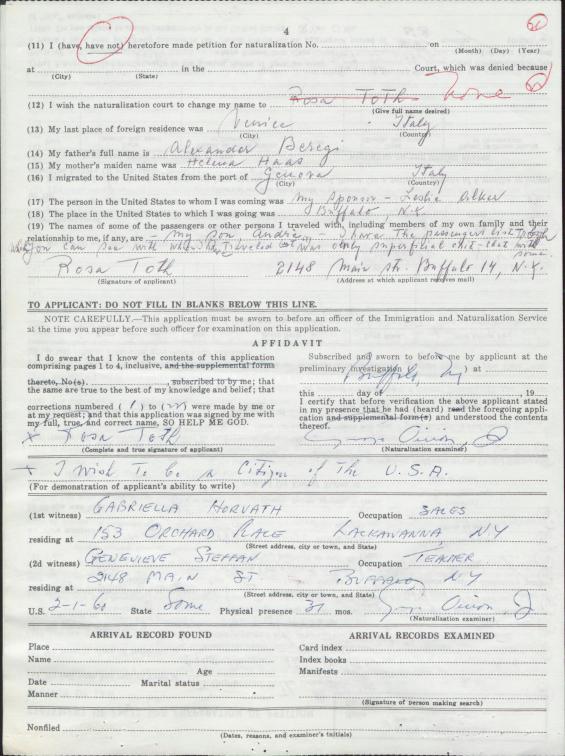 4
(11) I (have, have not) heretofore made petition for naturalization No. on
(Month) (Day) (Year)
at in the Court, which was denied because
(City) (State)
(12) I wish the naturalization court to change my name to Rosa Toth None
(Give full name desired)
(13) My last place of foreign residence was Venice Italy
(City) (Country)
(14) My father's full name is Alexander Beregi
(15) My mother's maiden name was Helena Haas
(16) I migrated to the United States from the port of Genova Italy
(City) (Country)
(17) The person in the United States to whom I was coming was my sponsor - Leslie
(18) The place in the United States to which I was going was Buffalo, N.Y.
(19) The names of some of the passengers or other persons I traveled with, including members of my own family and their
relationship to me, if any, are my son André. I have the passengers list
you can see with whom I traveled was only superficial - that with
some.
Rosa Toth 2148 Main str. Buffalo 14, N.Y.
(Signature of applicant) (Address at which applicant receives mail)
TO APPLICANT: DO NOT FILL IN BLANKS BELOW THIS LINE.
NOTE CAREFULLY.—This application must be sworn to before an officer of the Immigration and Naturalization Service
at the time you appear before such officer for examination on this application.
AFFIDAVIT
I do swear that I know the contents of this application
comprising pages 1 to 4, inclusive, and the supplemental forms
thereto, No(s). , subscribed to by me; that
the same are true to the best of my knowledge and belief; that
corrections numbered ( 1 ) to ( ) were made by me or
at my request; and that this application was signed by me with
my full, true, and correct name, SO HELP ME GOD.
x Rosa Toth
(Complete and true signature of applicant)
Subscribed and sworn to before me by applicant at the
preliminary investigation ( ) at
Buffalo, NY
this day of , 19
I certify that before verification the above applicant stated
in my presence that he had (heard) read the foregoing appli-
cation and supplemental form(s) and understood the contents
thereof.
(Naturalization examiner)
x I wish to be a Citizen of the U.S.A.
(For demonstration of applicant's ability to write)
(1st witness) GABRIELLA HORVATH Occupation SALES
residing at 153 ORCHARD PLACE LACKAWANNA, NY
(Street address, city or town, and State)
(2d witness) GENEVIEVE STEFFAN Occupation TEACHER
residing at 2148 MAIN ST BUFFALO, NY
(Street address, city or town, and State)
U.S. 2-1-61 State Same Physical presence 31 mos.
(Naturalization examiner)
ARRIVAL RECORD FOUND
Place
Name
Age
Date Marital status
Manner
ARRIVAL RECORDS EXAMINED
Card index
Index books
Manifests
(Signature of person making search)
Nonfiled
(Dates, reasons, and examiner's initials)